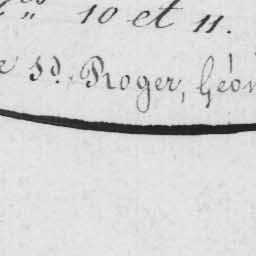 10 et 11.
Sd. Roger, Géom